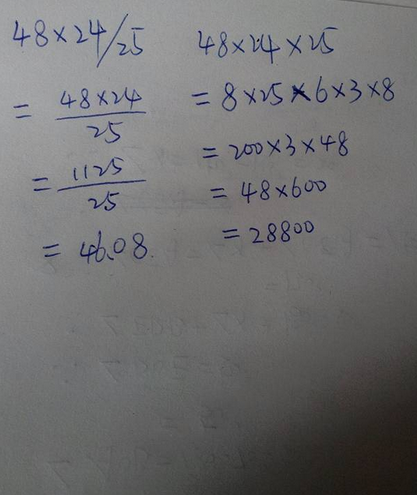 48×24/25
= 48×24
25
= 1125
25
= 46.08
48×24×25
= 8×25×6×3×8
= 200×3×48
= 48×600
= 28800